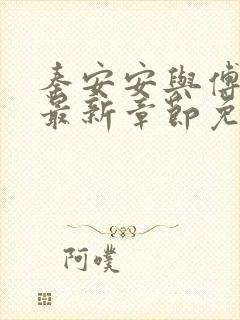 秦安安與傅
最新章節免
阿噗